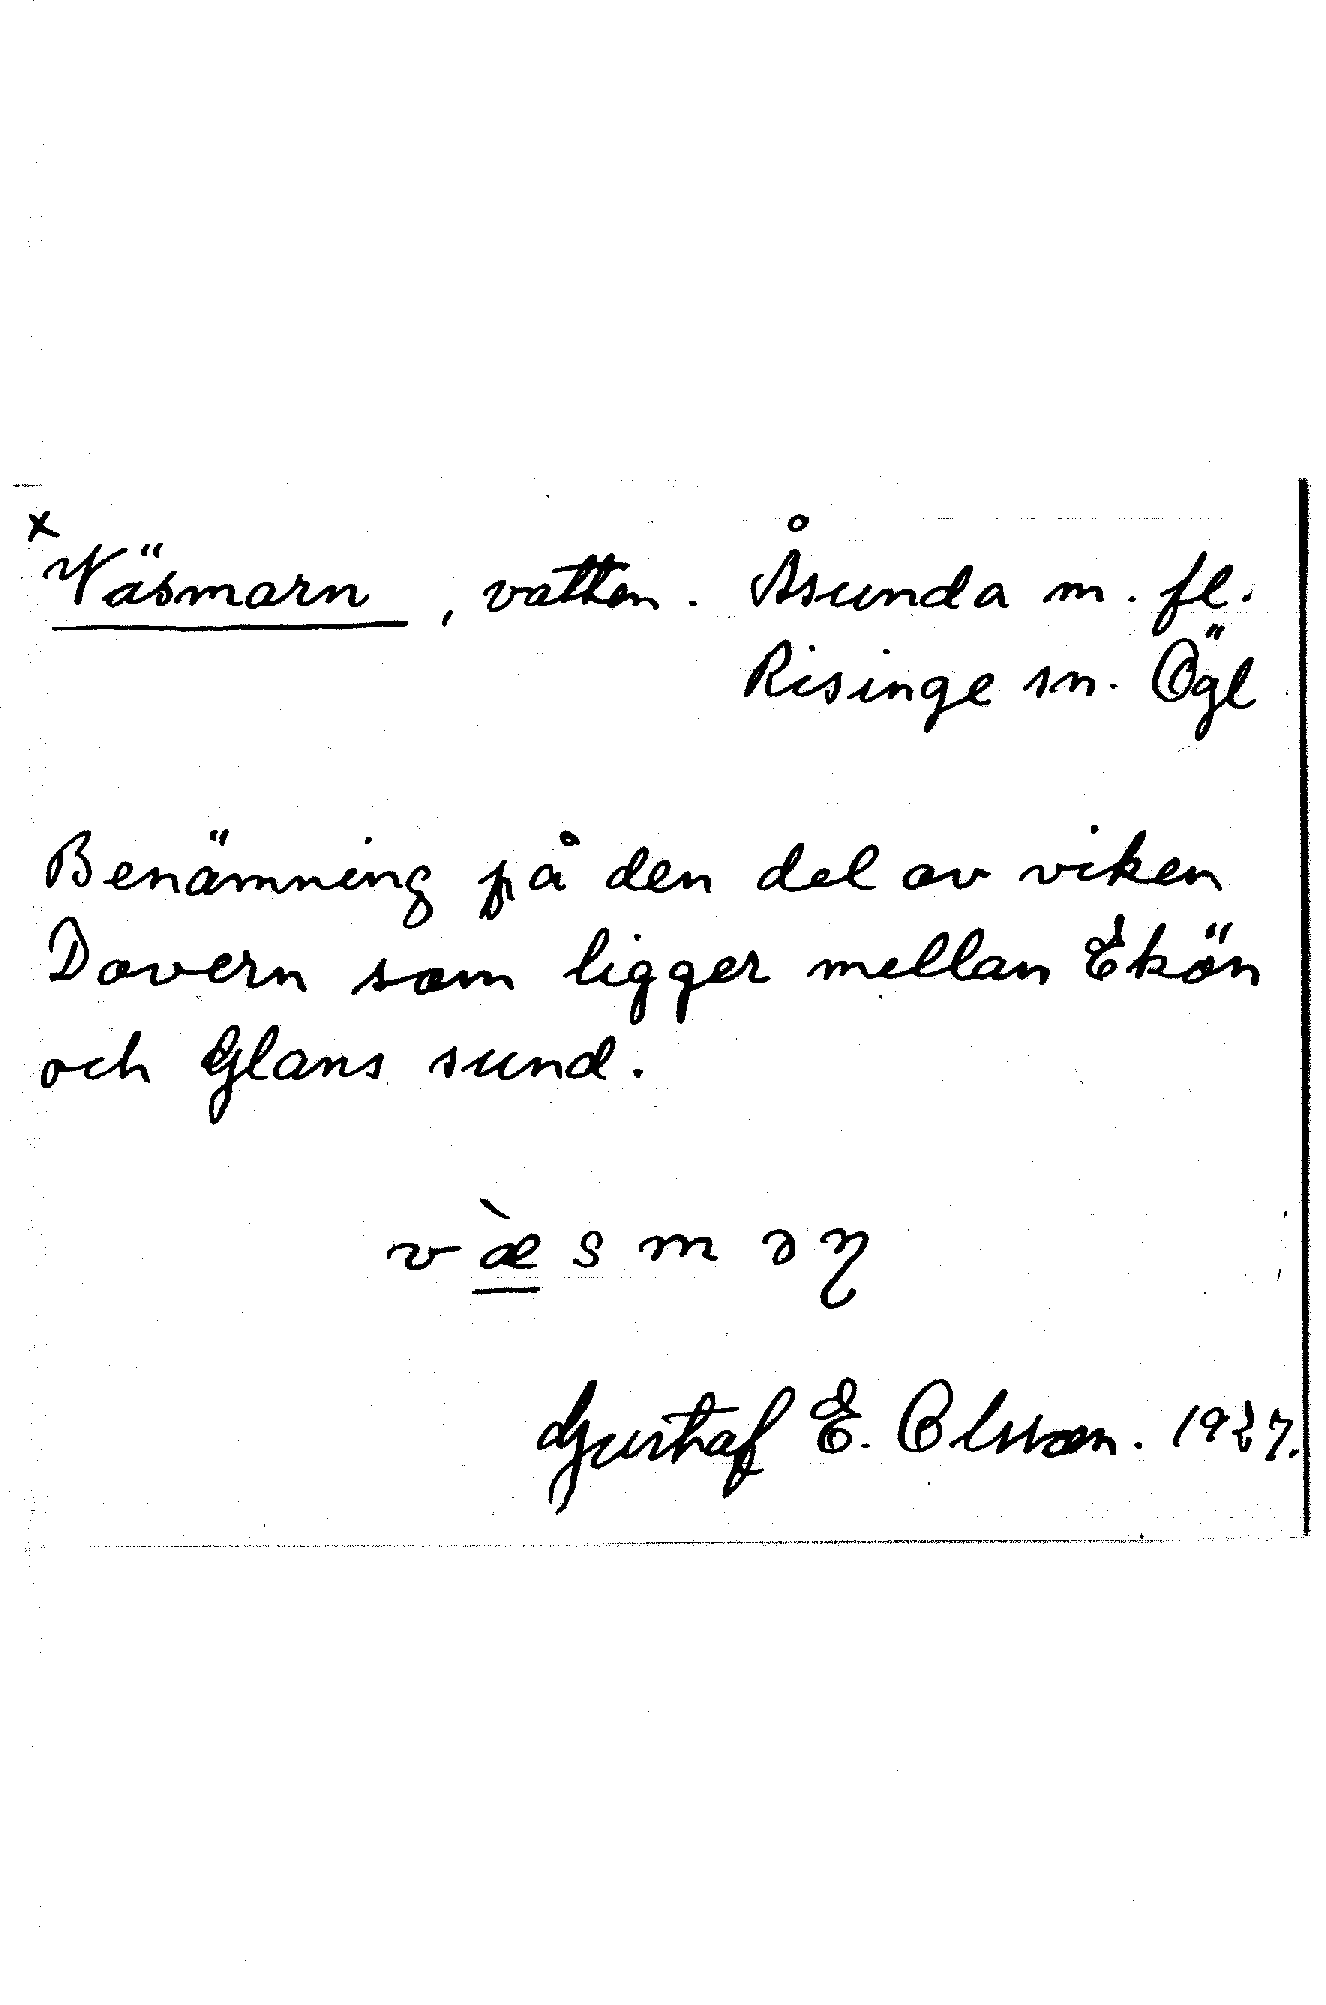 x
Väsmarn, vatten. Åsunda m. fl.
Risinge sn. Ögl
Benämning på den del av viken
Dovern som ligger mellan Ekön
och Glans sund.
v æ̀ s m ə ɳ
Gustaf E. Olsson. 1927.